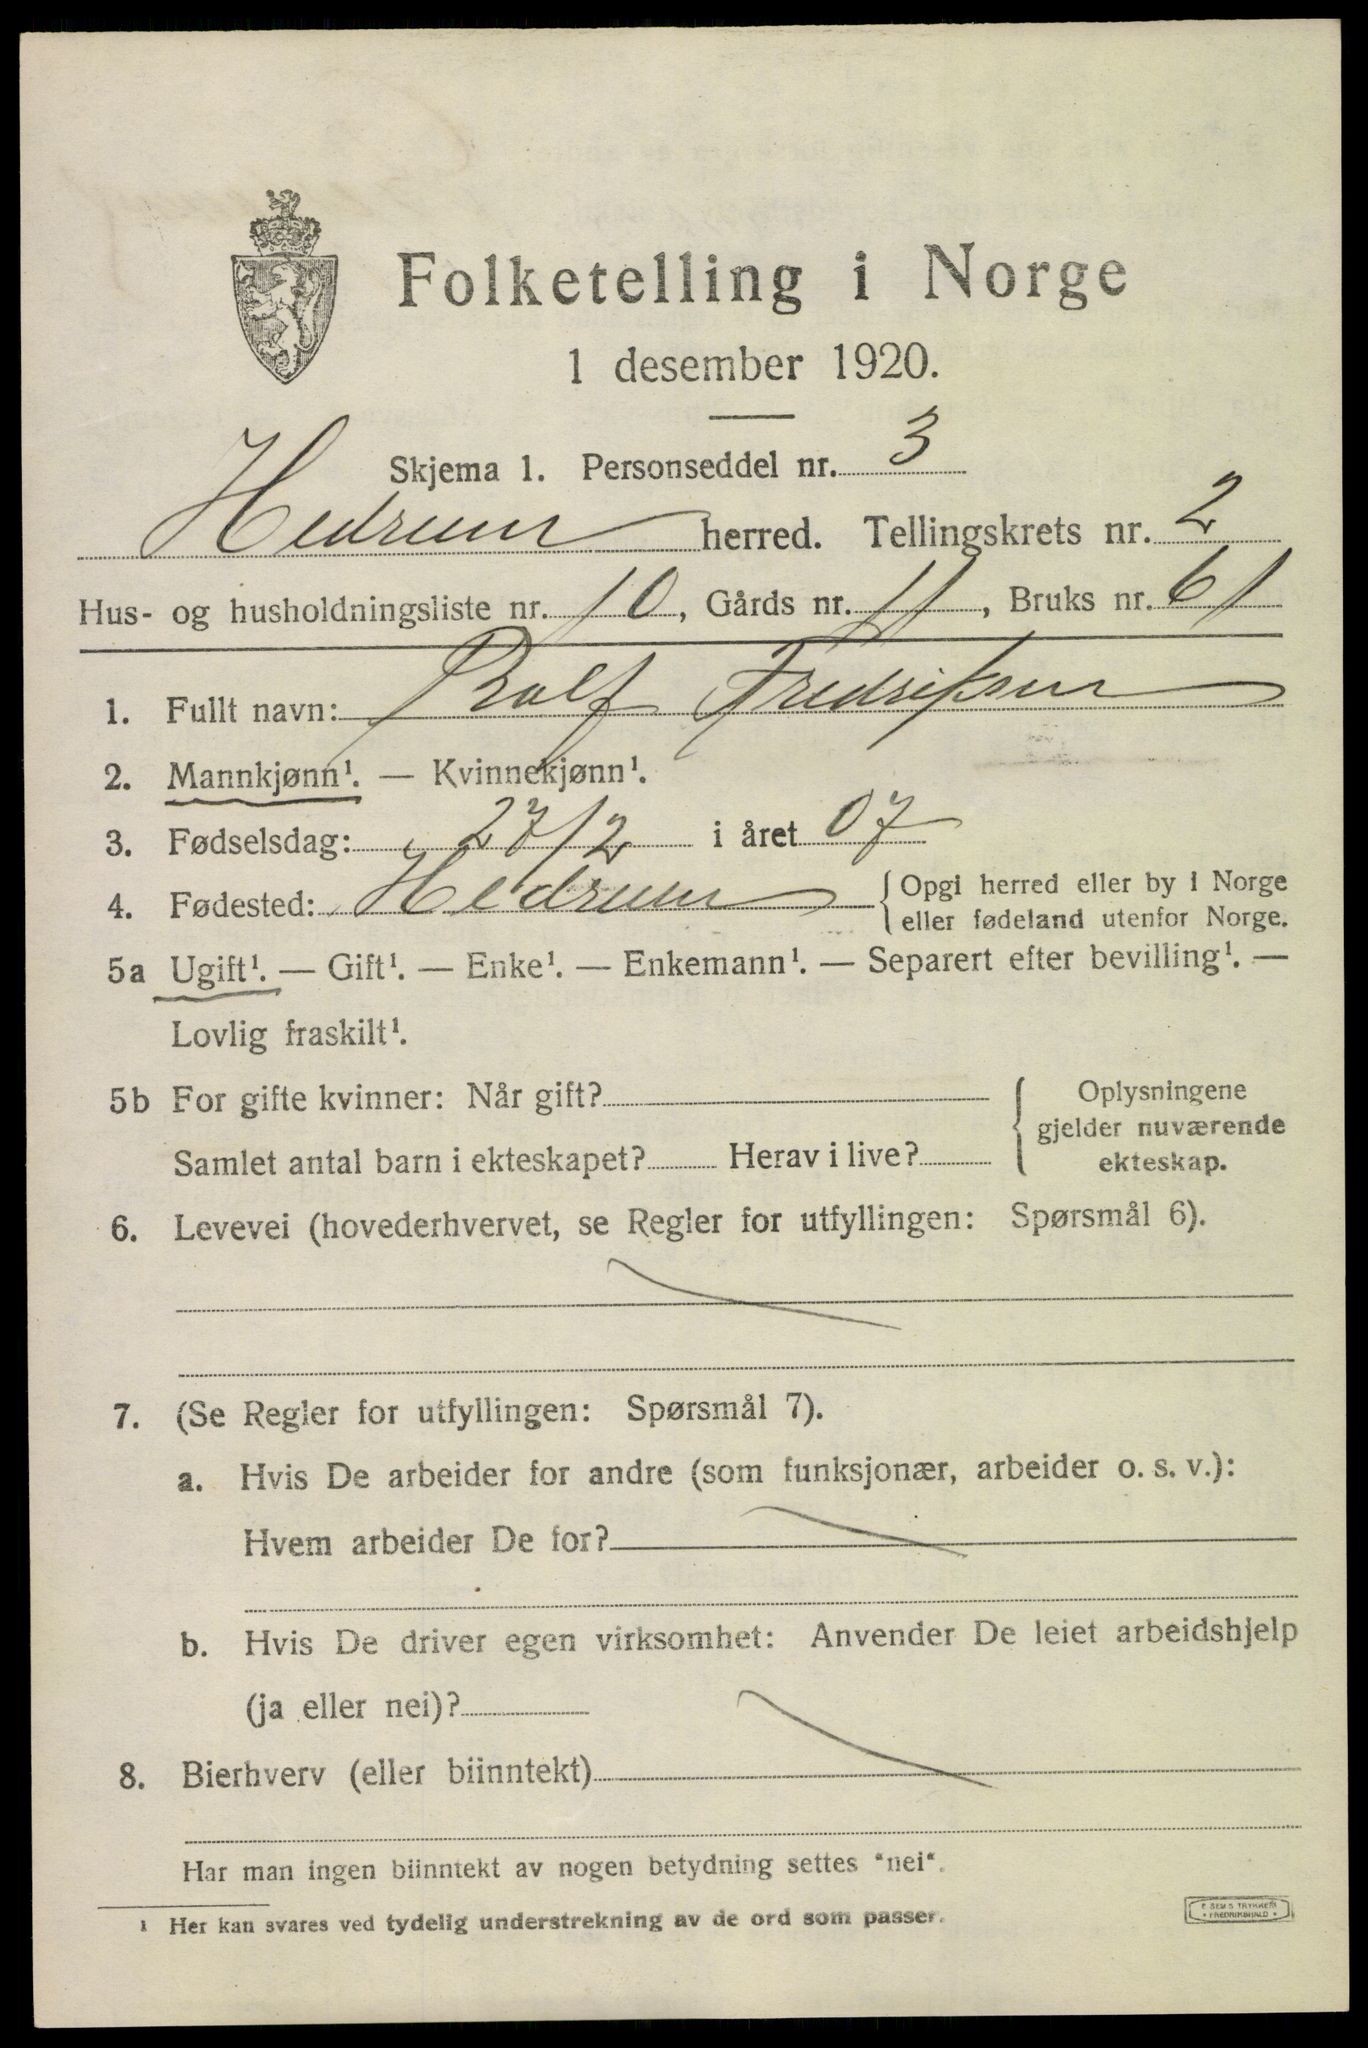 Folketelling i Norge
1 desember 1920.
Skjema 1. Personseddel nr. 3
Hedrum herred. Tellingskrets nr. 2
Hus- og husholdningsliste nr. 10, Gårds nr. 11, Bruks nr. 61
1. Fullt navn: Rolf Fredriksen
2. Mannkjønn¹. — Kvinnekjønn¹.
3. Fødselsdag: 27/2 i året 07
4. Fødested: Hedrum { Opgi herred eller by i Norge
eller fødeland utenfor Norge.
5a Ugift¹. — Gift¹. — Enke¹. — Enkemann¹. — Separert efter bevilling¹. —
Lovlig fraskilt¹.
5b For gifte kvinner: Når gift?
Samlet antal barn i ekteskapet? Herav i live?
{ Oplysningene
gjelder nuværende
ekteskap.
6. Levevei (hovederhvervet, se Regler for utfyllingen: Spørsmål 6).
7. (Se Regler for utfyllingen: Spørsmål 7).
a. Hvis De arbeider for andre (som funksjonær, arbeider o. s. v.):
Hvem arbeider De for?
b. Hvis De driver egen virksomhet: Anvender De leiet arbeidshjelp
(ja eller nei)?
8. Bierhverv (eller biinntekt)
Har man ingen biinntekt av nogen betydning settes "nei".
¹ Her kan svares ved tydelig understrekning av de ord som passer.
E SEMS TRYKKERI
• FREDRIKSHALD •